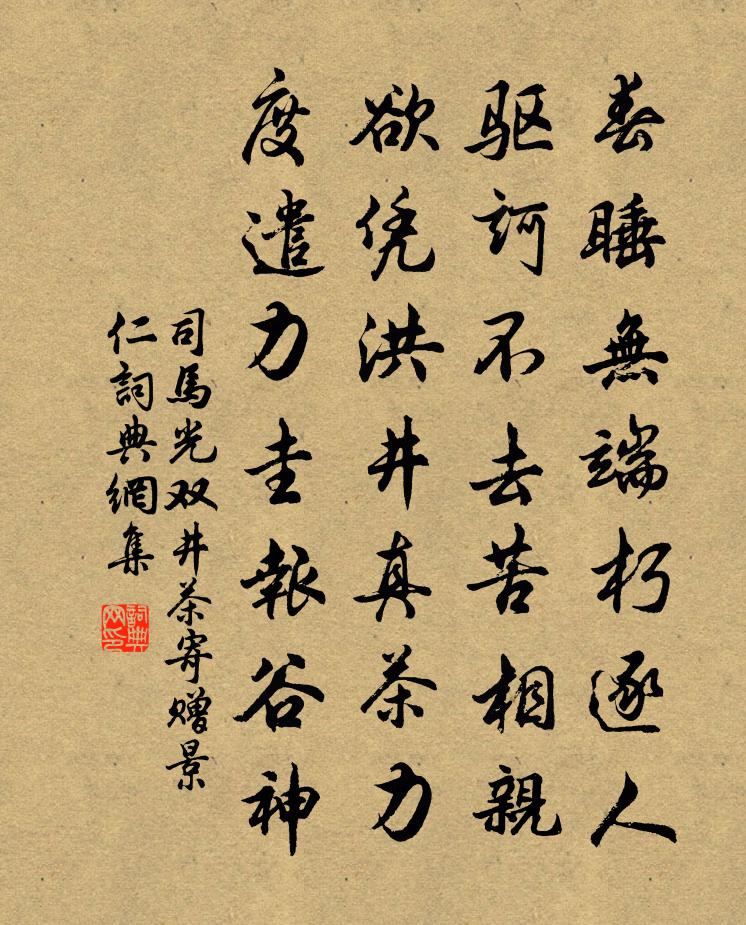 春睡無端朽逐人
驱訶不去苦相親
欲凭洪井真茶力
度遣力圭報谷神
司馬光双井茶寄赠景
仁詞典網集
詞典网印